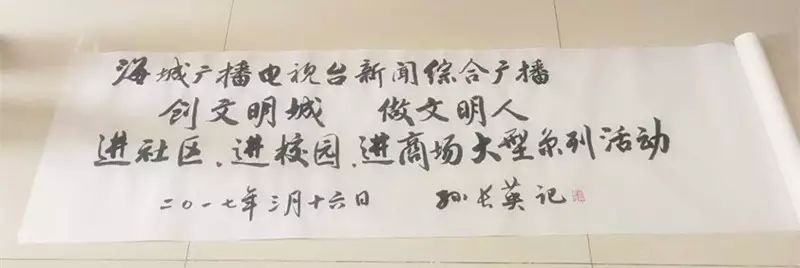 海城广播电视台新闻综合广播
创文明城 做文明人
进社区、进校园、进商场大型系列活动
二〇一七年三月十六日 孙长英记